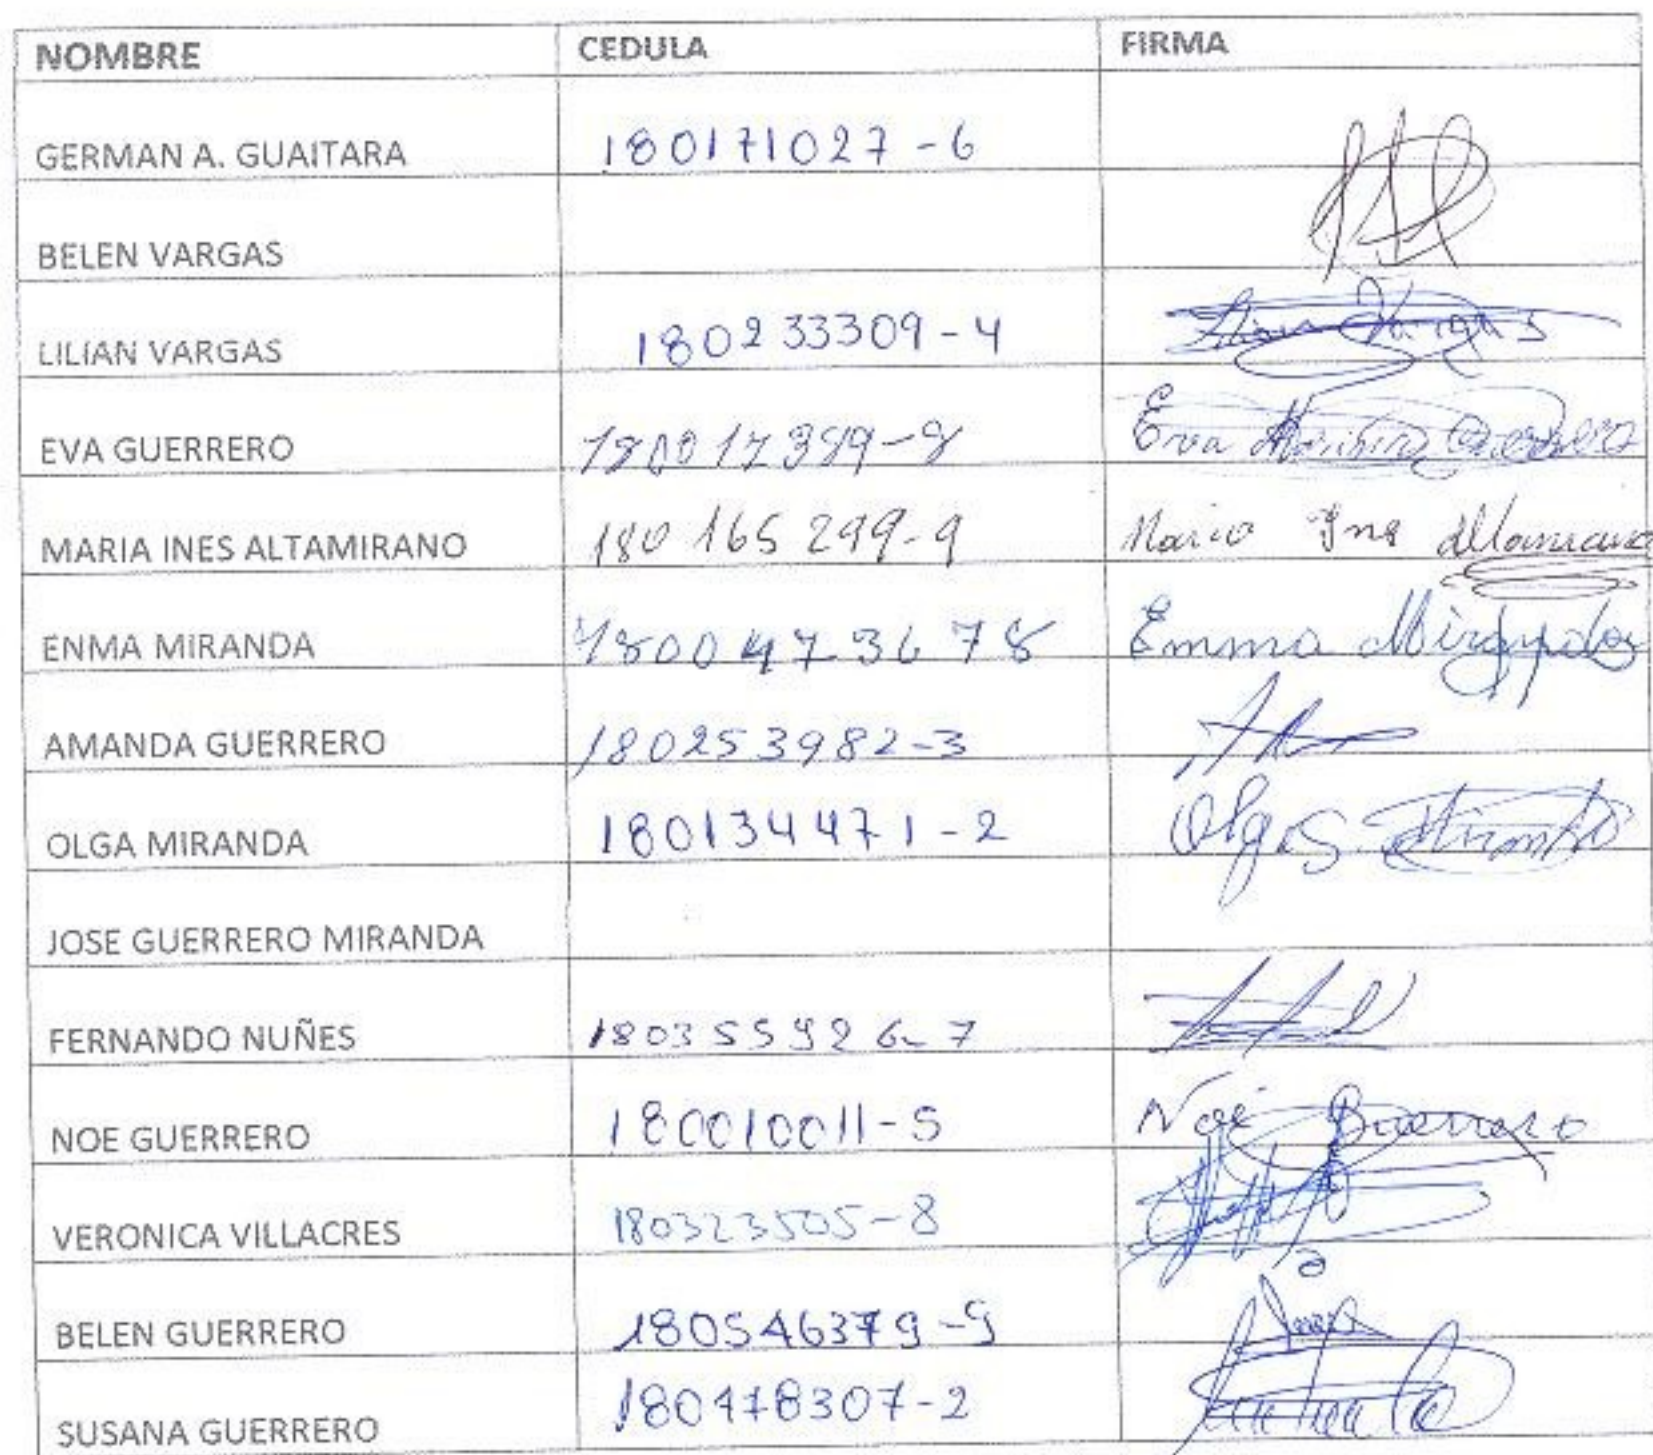 NOMBRE CEDULA FIRMA
GERMAN A. GUAITARA 180171027-6
BELEN VARGAS
LILIAN VARGAS 180233309-4 Vargas
EVA GUERRERO Eva Guerrero
MARIA INES ALTAMIRANO 180165299-9 Maria Ine Altamirano
ENMA MIRANDA 1800473678 Emma Miranda
AMANDA GUERRERO 180253982-3
OLGA MIRANDA 180134471-2 Olga S. Miranda
JOSE GUERRERO MIRANDA
FERNANDO NUÑES 180355926-7
NOE GUERRERO 180010011-5 Noé Guerrero
VERONICA VILLACRES 180323505-8
BELEN GUERRERO 180546379-9
SUSANA GUERRERO 180478307-2